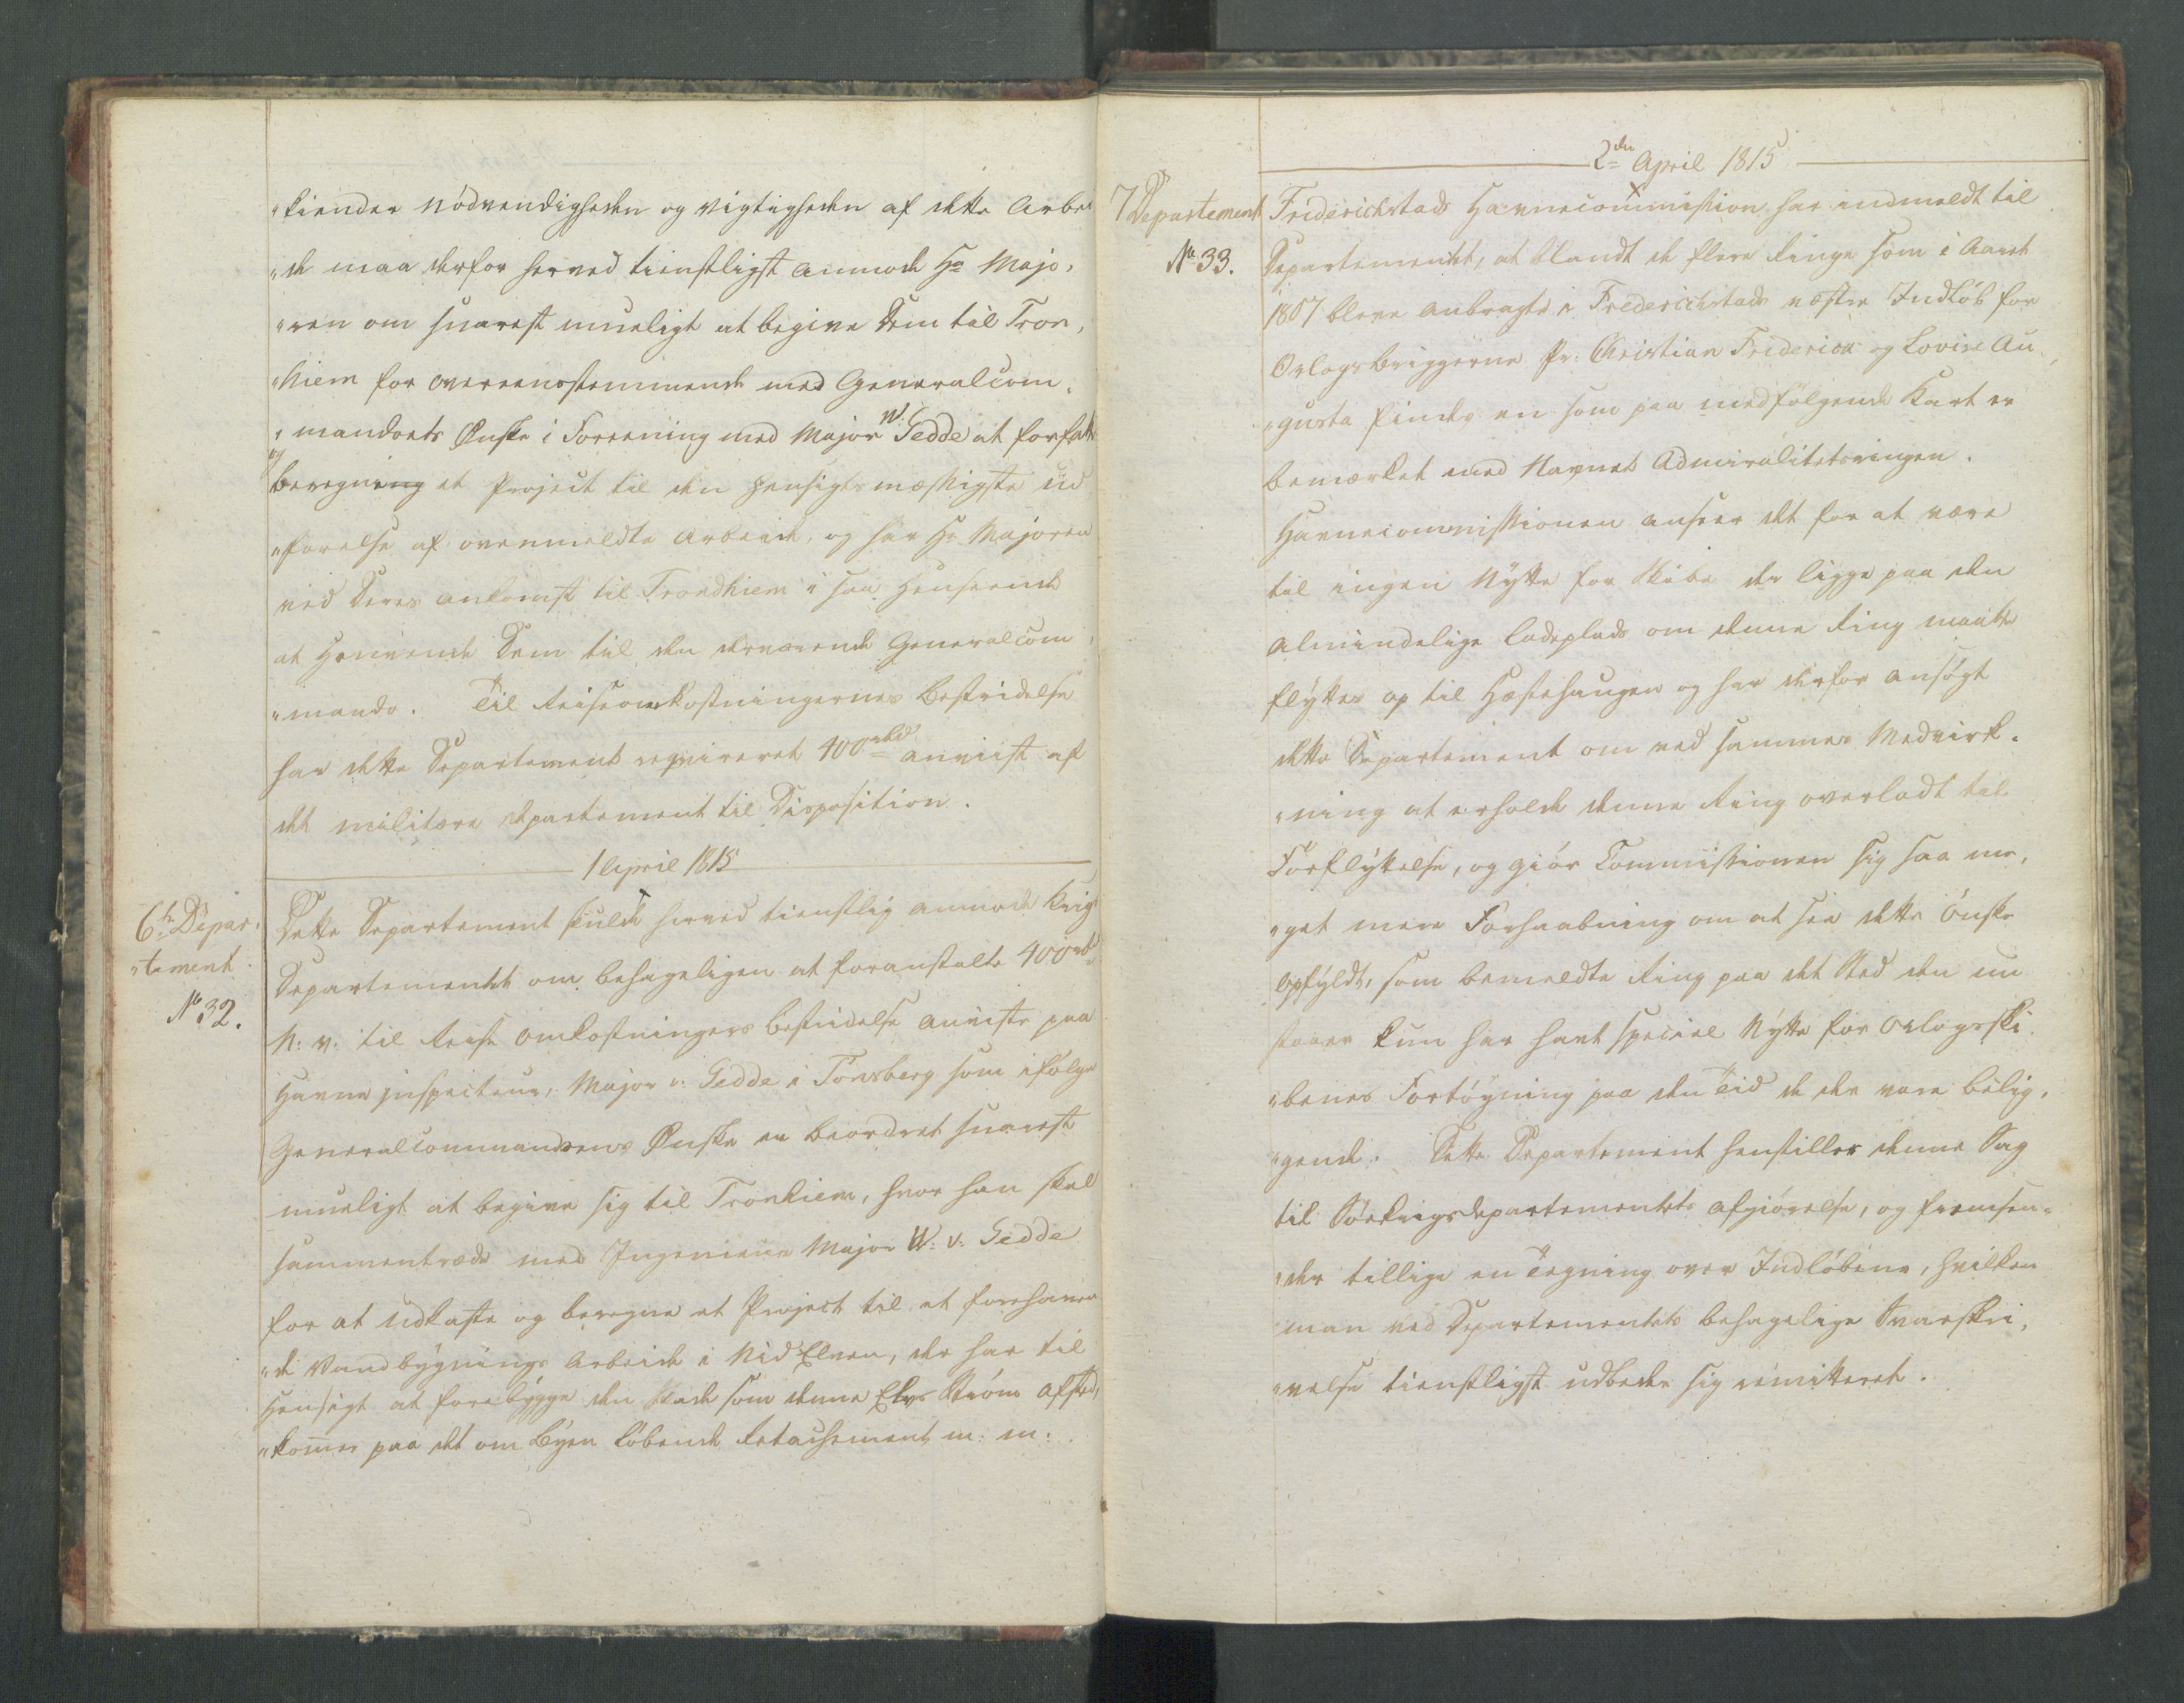 "kiender Nödvendigheden og Vigtigheden af dette Arbei
"de maa derfor herved tienstligst anmode Hr Majo,
"ren om snarest mueligt at begive Dem til Tron,
"hiem for overeensstemmende med Generalcom,
"mandoets Ønske i Foreening med Major W. Gedde at forfatte
og
beregning et Project til den hensigtsmæssigste Ud
"förelse af ovenmeldte Arbeide, og har Hr Majoren
ved Deres Ankomst til Trondhiem i saa Henseende
at henvende Dem til den derværende Generalcom,
"mando. Til Reiseomkostningernes Bestridelse
har dette Departement reqvireret 400 rbd anviist af
det militære Departement til Disposition.
1 April 1815
6te Depar,
"tement
No 32.
Dette Departement skulde herved tienstlig anmode Krigs
Departementet om behageligen at foranstalte 400 rbd
N: V: til Reise Omkostningers Bestridelse anviste paa
Havne Inspecteur, Major v: Gedde i Tönsberg som ifölge
Generalcommandoens Ønske er beordret snarest
mueligt at begive sig til Tronhiem, hvor han skal
sammentræde med Ingenieur Major W: v: Gedde
for at udkaste og beregne et Project til et forehaven
"de Vandbygnings Arbeide i Nid Elven, der har til
Hensigt at forebygge den Skade som denne Elvs Ström afsted,
"kommer paa det om Byen löbende Retachement m: m:
2den April 1815
7 Departement
No 33.
Friderichstads Havnecommission har indmeldt til
Departementet, at blandt de flere Ringe som i Aaret
1807 bleve anbragte i Frederichstads vestre Indlöb for
Orlogsbriggerne Pr: Christian Friderich og Lovise Au,
"gusta findes en som paa medfölgende Kart er
bemærket med Navnet Admiralitetsringen.
Havnecommissionen anseer det for at være
til ingen Nytte for Skibe der ligge paa den
almindelige Ladeplads om denne Ring maatte
flyttes op til Hestehaugen og har derfor ansögt
dette Departement om ved sammes Medvirk,
"ning at erholde denne Ring overladt til
Forflyttelse, og giör Commissionen sig saa me,
"get mere Forhaabning om at see dette Önske
opfyldt, som bemeldte Ring paa det Sted den nu
staaer kun har havt speciel Nytte for Orlogsski,
"benes Fortöyning paa den Tid de der vare belig,
"gende. Dette Departement henstiller denne Sag
til Söekrigsdepartementets Afgiörelse, og fremsen,
"der tillige en Tegning over Indlöbene, hvilken
man ved Departementets behagelige Svarskri,
"velse tienstligst udbeder sig remitteret.